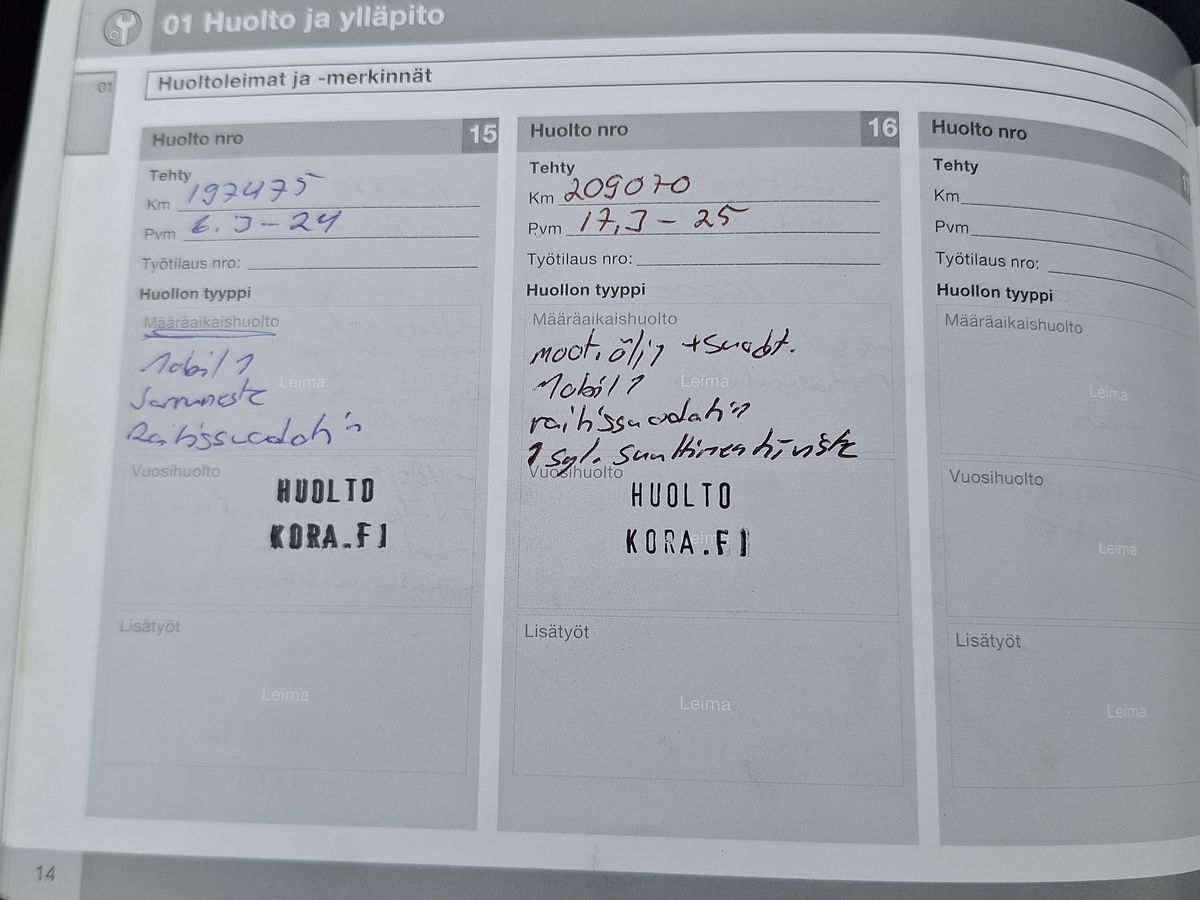 01 Huolto ja ylläpito
01
Huoltoleimat ja -merkinnät
Huolto nro 15
Tehty
Km 197475
Pvm 6.3-24
Työtilaus nro:
Huollon tyyppi
Määräaikaishuolto
Mobil 1
Leima
Jarruneste
Raitissuodatin
Vuosihuolto
HUOLTO
KORA.FI
Lisätyöt
Leima
Huolto nro 16
Tehty
Km 209070
Pvm 17.3-25
Työtilaus nro:
Huollon tyyppi
Määräaikaishuolto
moot.öljy +suodat.
Mobil 1
Leima
raitissuodatin
1 syl. suuttimen tiiviste
Vuosihuolto
HUOLTO
KORA.FI
Lisätyöt
Leima
Huolto nro
Tehty
Km
Pvm
Työtilaus nro:
Huollon tyyppi
Määräaikaishuolto
Leima
Vuosihuolto
Leima
Lisätyöt
Leima
14